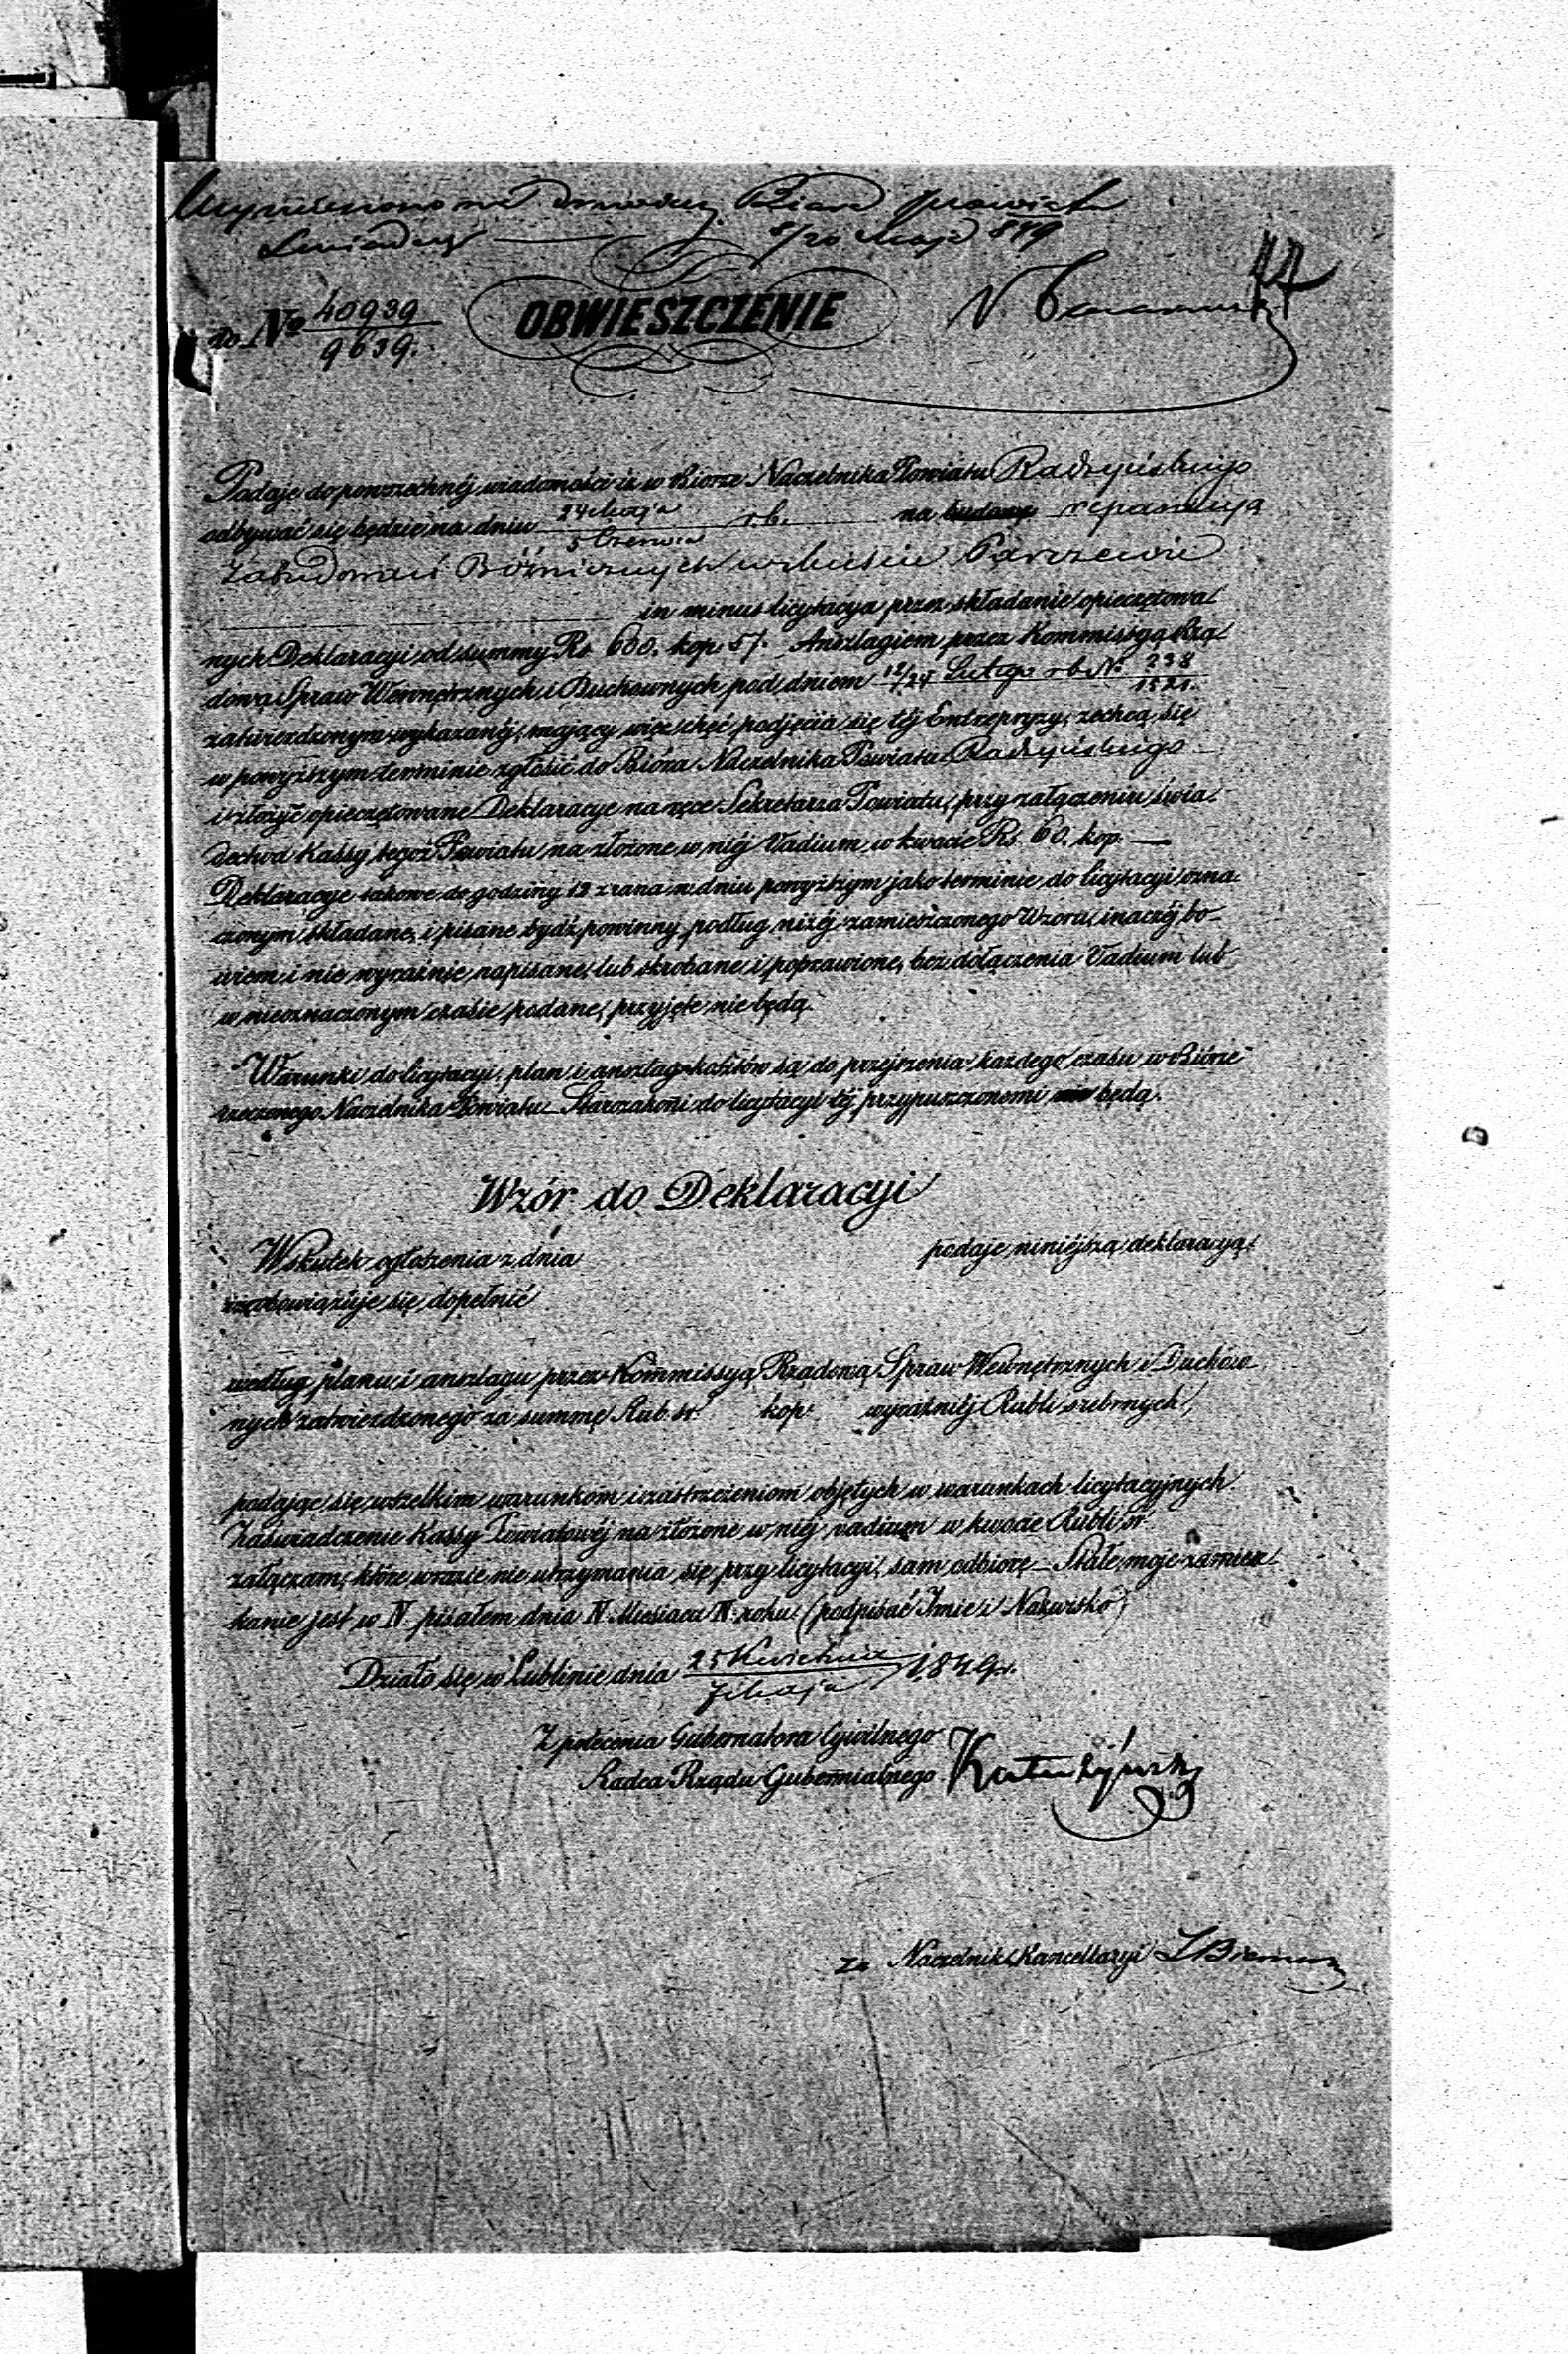 8/20 Maja 849
47
do No 40939/9639.
OBWIESZCZENIE
Podaje do powszechnéj wiadomości iż w Biorze Naczelnika Powiatu Radzyńskiego
odbywać się będzie na dniu 24 Maja/5 Czerwca r.b. na budowę reparacyą
Zabudowań Bóżnicznych w Mieście Parczewie
in minus licytacya przez składanie opieczętowa-
nych Deklaracyi, od summy Rs. 600. kop. 51. Anszlagiem przez Kommissyą Rzą-
dową Spraw Wewnętrznych i Duchownych pod dniem 12/24 Lutego r b No 238/1521.
zatwierdzonym wykazanéj, mający więc chęć podjęcia się téj Entrepryzy, zechcą się
w powyższym terminie zgłosić do Bióra Naczelnika Powiatu Radzyńskiego
i złożyć opieczętowane Deklaracye na ręce Sekretarza Powiatu, przy załączeniu świa-
dectwa Kassy tegoż Powiatu na złożone w niéj Vadium w kwocie Rs. 60. kop. —
Deklaracye takowe do godziny 12 z rana w dniu powyższym jako terminie do licytacyi ozna-
czonym składane, i pisane bydź powinny podług niżéj zamieszczonego Wzoru, inaczéj bo-
wiem i nie wyraźnie napisane, lub skrobane i poprawione, bez dołączenia Vadium lub
w nieoznaczonym czasie podane, przyjęte nie będą.
Warunki do licytacyi, plan i anszlag kosztów są do przejrzenia każdego czasu w Biórze
rzeczonego Naczelnika Powiatu Starozakoni do licytacyi téj przypuszczonemi nie będą.
Wzór do Deklaracyi
Wskutek ogłoszenia z dnia podaje niniéjszą deklaracyą,
iż zobowiązuje się dopełnić
według planu i anszlagu przez Kommissyą Rządową Spraw Wewnętrznych i Duchow-
nych zatwierdzonego za summę Rub. sr. kop. wyraźniéj Rubli srebrnych,
podając się wszelkim warunkom i zastrzeżeniom objętych w warunkach licytacyjnych.
Zaświadczenie Kassy Powiatowéj na złożone w niéj vadium w kwocie Rubli sr.
załączam, które w razie nie utrzymania się przy licytacyi, sam odbiorę — Stałe moje zamiesz-
kanie jest w N. pisałem dnia N Miesiaca N. roku (podpisać Imie i Nazwisko)
Działo się w Lublinie dnia 25 Kwietnia/7 Maja 1849 r.
Z polecenia Gubernatora Cywilnego
Radca Rządu Gubernialnego
Za Naczelnik Kancellaryi